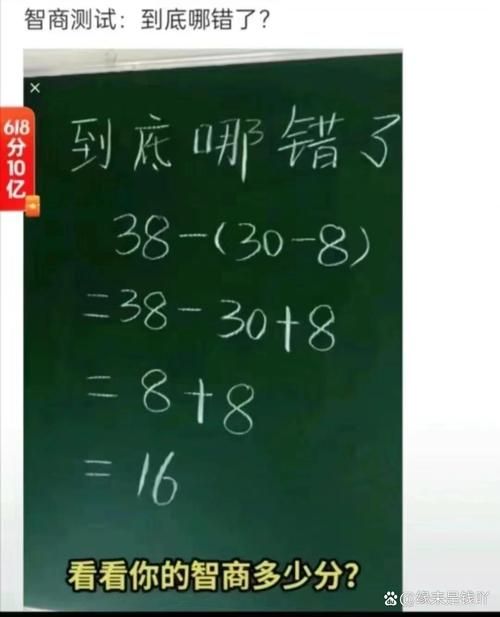 智商测试：到底哪错了？
×
618
分
10
亿
到底哪错了
38-(30-8)
=38-30+8
=8+8
=16
看看你的智商多少分？
@缘来是钱吖